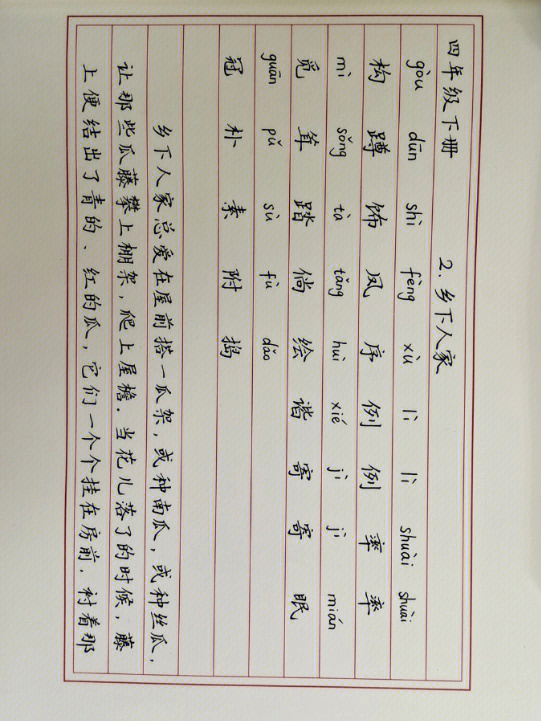 四年级下册 2.乡下人家
gòu dūn shì fèng xù lì lì shuài shuài
构 蹲 饰 凤 序 例 例 率 率
mì sǒng tà tǎng huì xié jì jì mián
觅 耸 踏 倘 绘 谐 寄 寄 眠
guān pǔ sù fù dǎo
冠 朴 素 附 捣
乡下人家总爱在屋前搭一瓜架,或种南瓜,或种丝瓜,
让那些瓜藤攀上棚架,爬上屋檐。当花儿落了的时候,藤
上便结出了青的、红的瓜,它们一个个挂在房前,衬着那